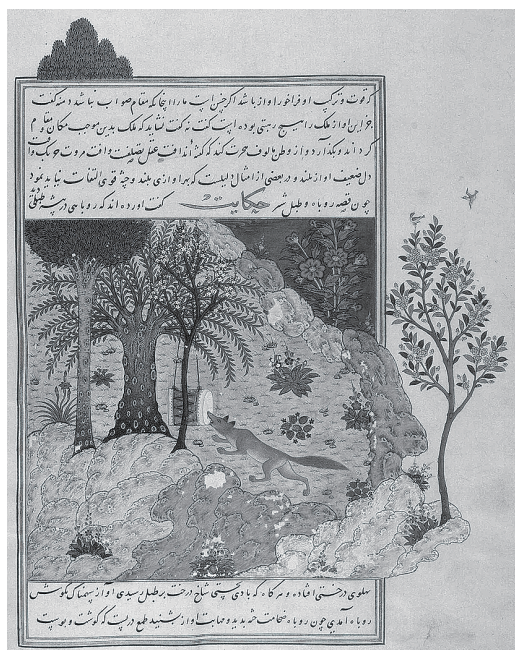 که قوت و ترکیب او فراخور اواز باشد اگر چنین است ما را اینجا مقام صواب نباشد دمنه گفت
جز این اواز ملک را هیچ ریبتی بوده است گفت نه گفت نشاید که ملک بدین موجب مکان و مقام
بگذارد و از وطن مالوف هجرت کند که گفته‌اند افت عقل تصلفست و افت مروت چربک و افت
دل ضعیف اواز بلند و در بعضی از امثال دلیلست که بهر اوازی بلند و جثه قوی التفات نباید نمود
چون قصه روباه و طبل شیر گفت حکایت اورده‌اند که روباهی در بیشه طبلی دید
پهلوی درختی افتاده و هرگاه که بادی بجستی شاخ درخت بر طبل رسیدی اواز سهمناک بگوش
روباه آمدی چون روباه ضخامت جثه بدید و مهابت اواز بشنید طمع دربست که گوشت و پوست